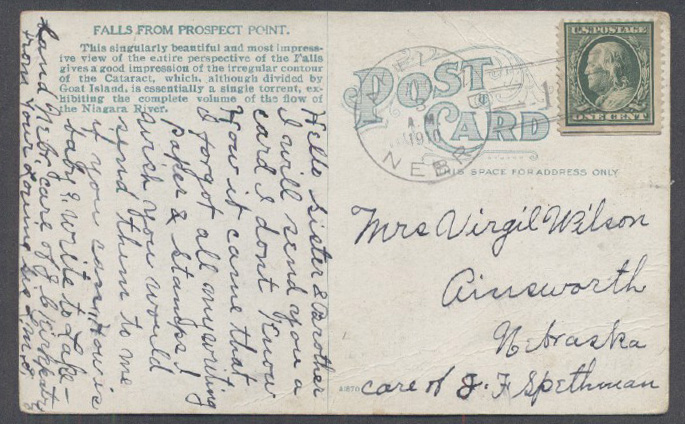 FALLS FROM PROSPECT POINT.
This singularly beautiful and most impress-
ive view of the entire perspective of the Falls
gives a good impression of the irregular contour
of the Cataract, which, although divided by
Goat Island, is essentially a single torrent, ex-
hibiting the complete volume of the flow of
the Niagara River.
POST
CARD
THIS SPACE FOR ADDRESS ONLY
U.S. POSTAGE
ONE CENT
A.M.
1910
NEBR
1
Hello Sister & Brother
I will send you a
card I dont know
how it came that
I forgot all my writing
paper & stamps I
wish you would
send them to me
if you can, How is
baby & write to
Land Nebr, care of
from your loving sis
Mrs Virgil Wilson
Ainsworth
Nebraska
care of J. F Spethman